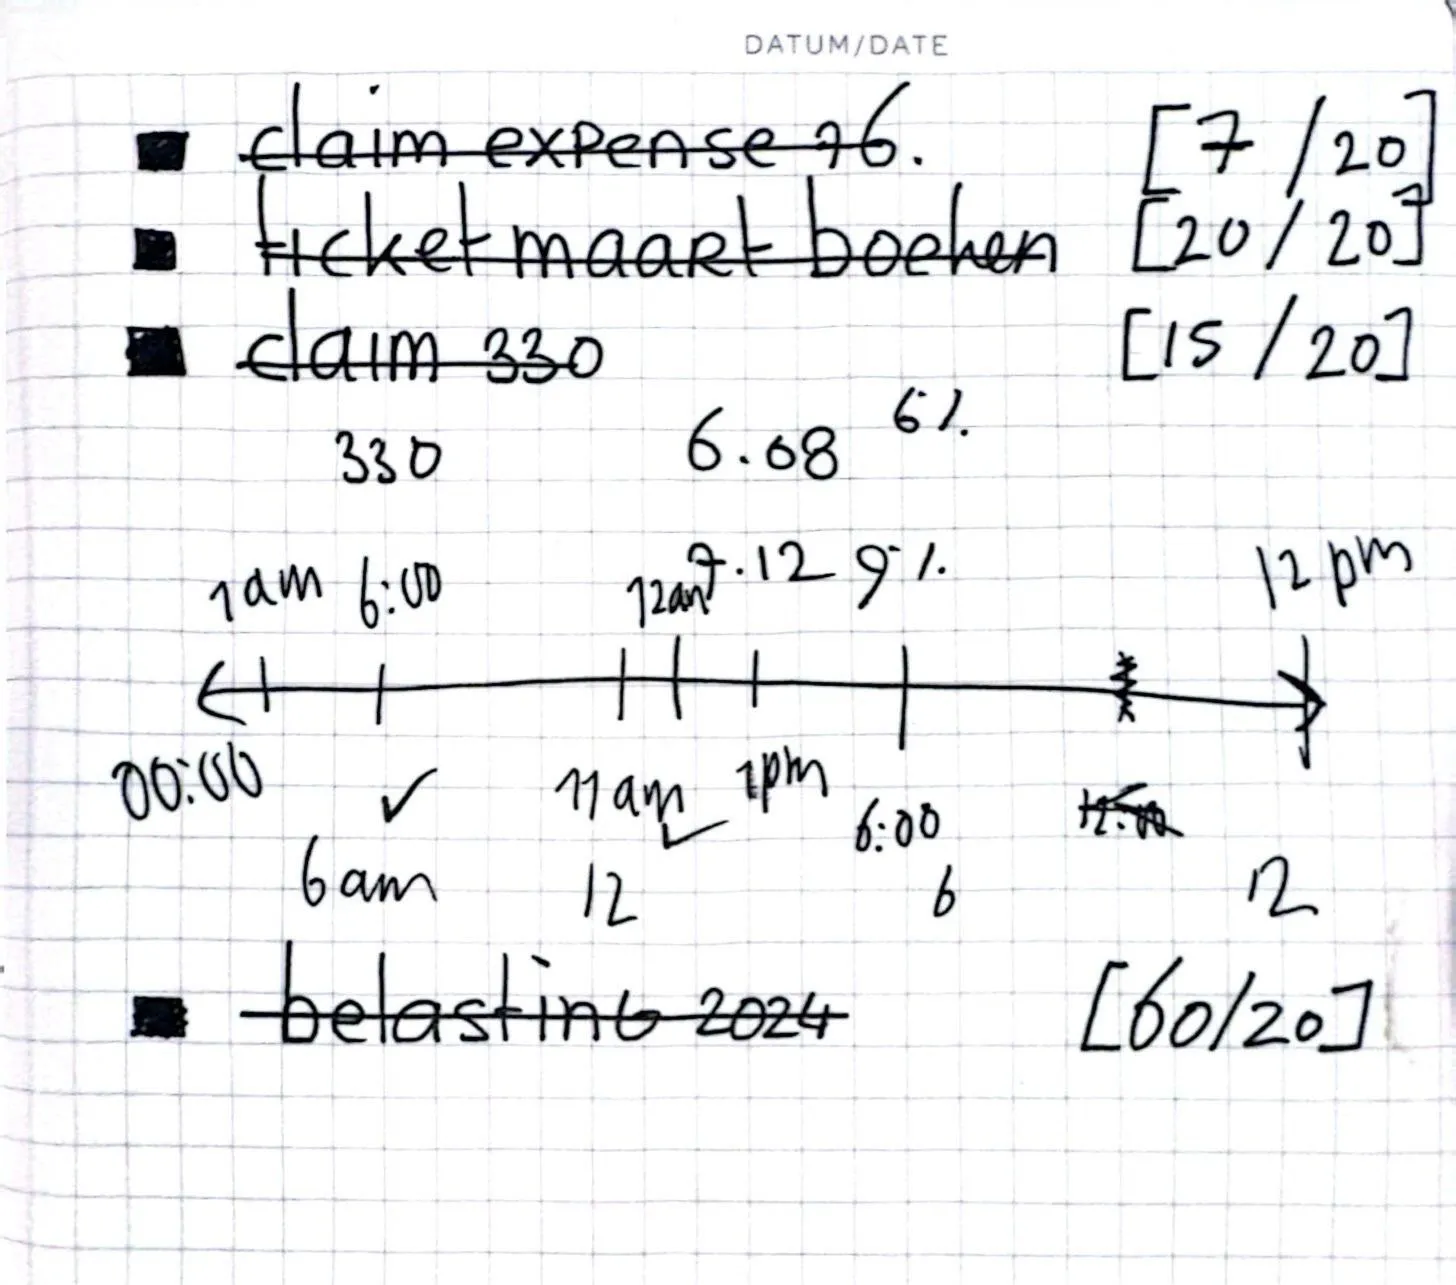 DATUM/DATE
claim expense 76. [7/20]
ticket maart boeken [20/20]
claim 330 [15/20]
330 6.08 6%
7.12 9%
1am 6:00 12am 12pm
00:00 11am 1pm 6:00 12:00
6am 12 6 12
belasting 2024 [60/20]